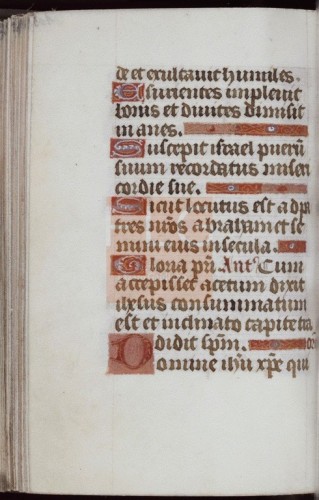 de et exultavit humiles.
Esurientes implevit
bonis et divites dimisit
inanes.
Suscepit israel puerū
suum recordatus miseri
cordie sue.
Sicut locutus est ad pa
tres nr̄os abraham et se
mini eius in secula.
Gloria pr̄i. Ant̄. Cum
accepisset acetum dixit
ihesus consummatum
est et inclinato capite tra
didit sp̄m. or̄o
Domine ih̄u xp̄e qui